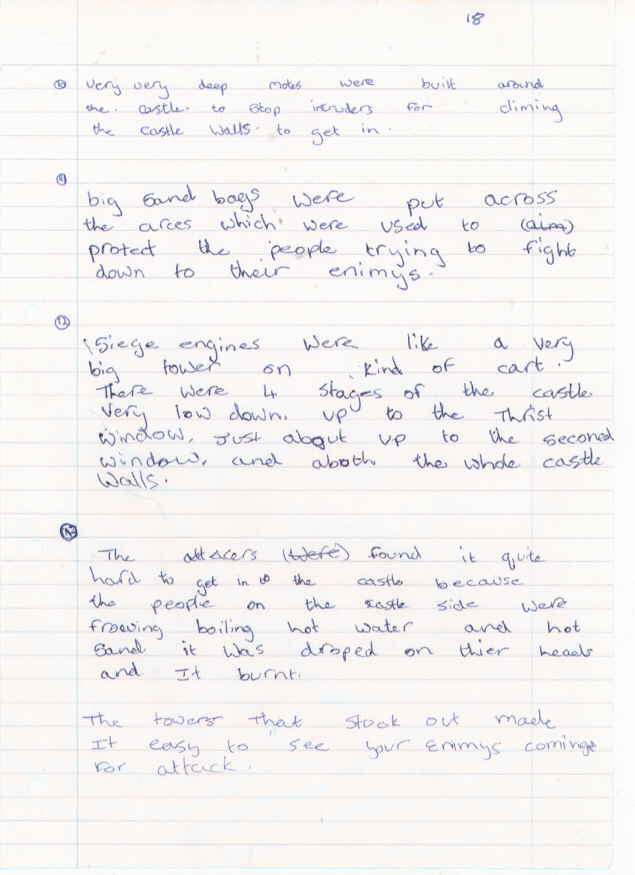 18
⑩ Very very deep motes were built around
the. castle. to stop intruders for climing
the castle walls. to get in.
⑪ big sand bags were put across
the arces which were used to (aim)
protect the people trying to fight
down to their enimys.
⑫ Siege engines were like a very
big tower on kind of cart.
There were 4 stages of the castle
very low down. up to the Thrist
window, just about up to the second
window, and aboth the whole castle
walls.
The attacers (were) found it quite
hard to get in to the castle because
the people on the castle side were
frowing boiling hot water and hot
sand it was droped on thier heads
and It burnt.
The towers that stook out made
It easy to see your Enimys coming
for attack.